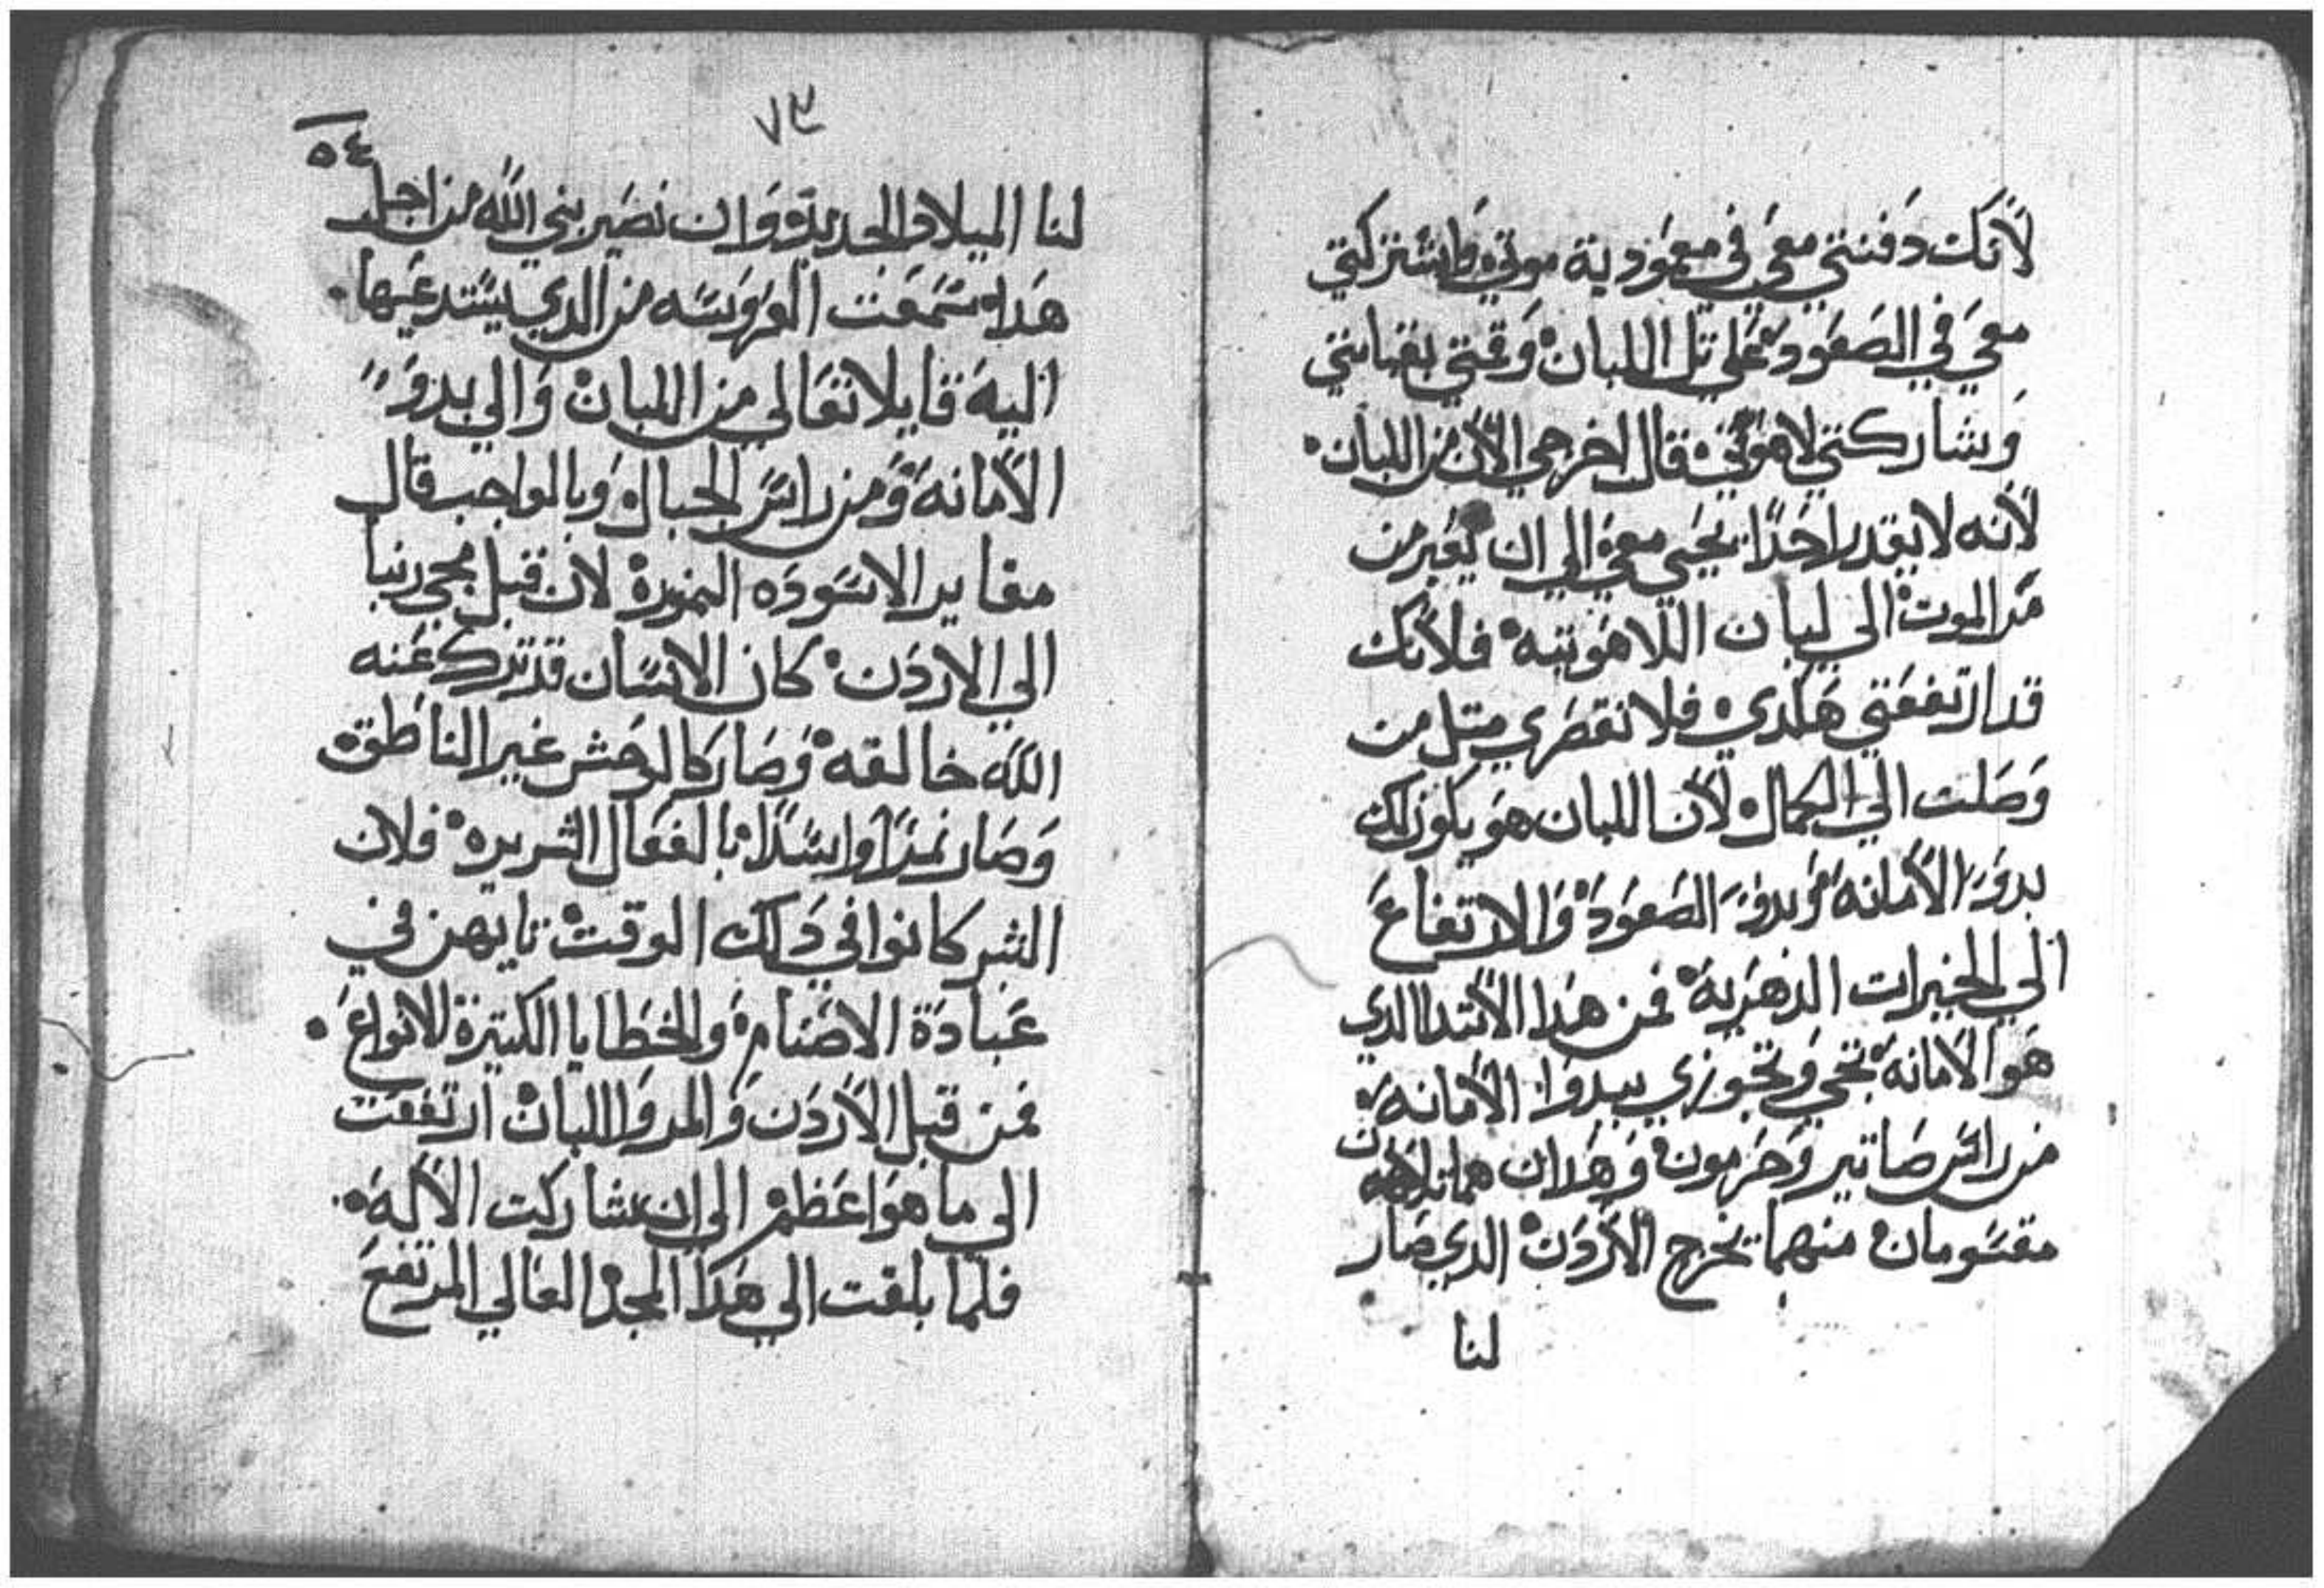 لأنك دفنتي معي في معمودية موتي واشتركتي
معي في الصعود علي تل اللبان وقمتي بقيامتي
وشاركتي لاهوتي قال اخرجي الأن من اللبان
لأنه لا يقدر احدًا يجي معي الي ان يعبر من
مر الموت الي لبان اللاهوتيه فلأنك
قد ارتفعتي هكدي فلا تقصري متل من
وصلت الي الكمال لأن اللبان هو يكون لك
بدوّ الأمانه وبدوّ الصعود والارتفاع
الي الخيرات الدهريه فمن هدا الأبتدا الدي
هو الأمانه تجي وتجوزي ببدوا الأمانه
من رائس صانير وحرمون وهدان هما تلاهان
مقسومان منهما يخرج الأردن الدي صار
لنا
٧٣
٥٤
لنا الميلاد الجديد وان نصير بني الله من اجل
هدا سمعت العروسه من الدي يستدعيها
اليه قايلا تعالي من اللبان والي بدوّ
الأمانه ومن رائس الجبال وبالواجب قال
مغاير الاسوده النموره لان قبل مجي ربنا
الي الاردن كان الانسان قد ترك عنه
الله خالقه وصار كالوحش غير الناطقة
وصار نمرًا واسدًا بالفعال الشريره فلان
البشر كانوا في دلك الوقت تايهن في
عبادة الاصنام والخطايا الكتيرة الانواع
فمن قبل الأردن والمر واللبان ارتفعت
الي ما هو اعظم الي ان شاركت الأله
فلما بلغت الي هدا المجد العالي المرتفع